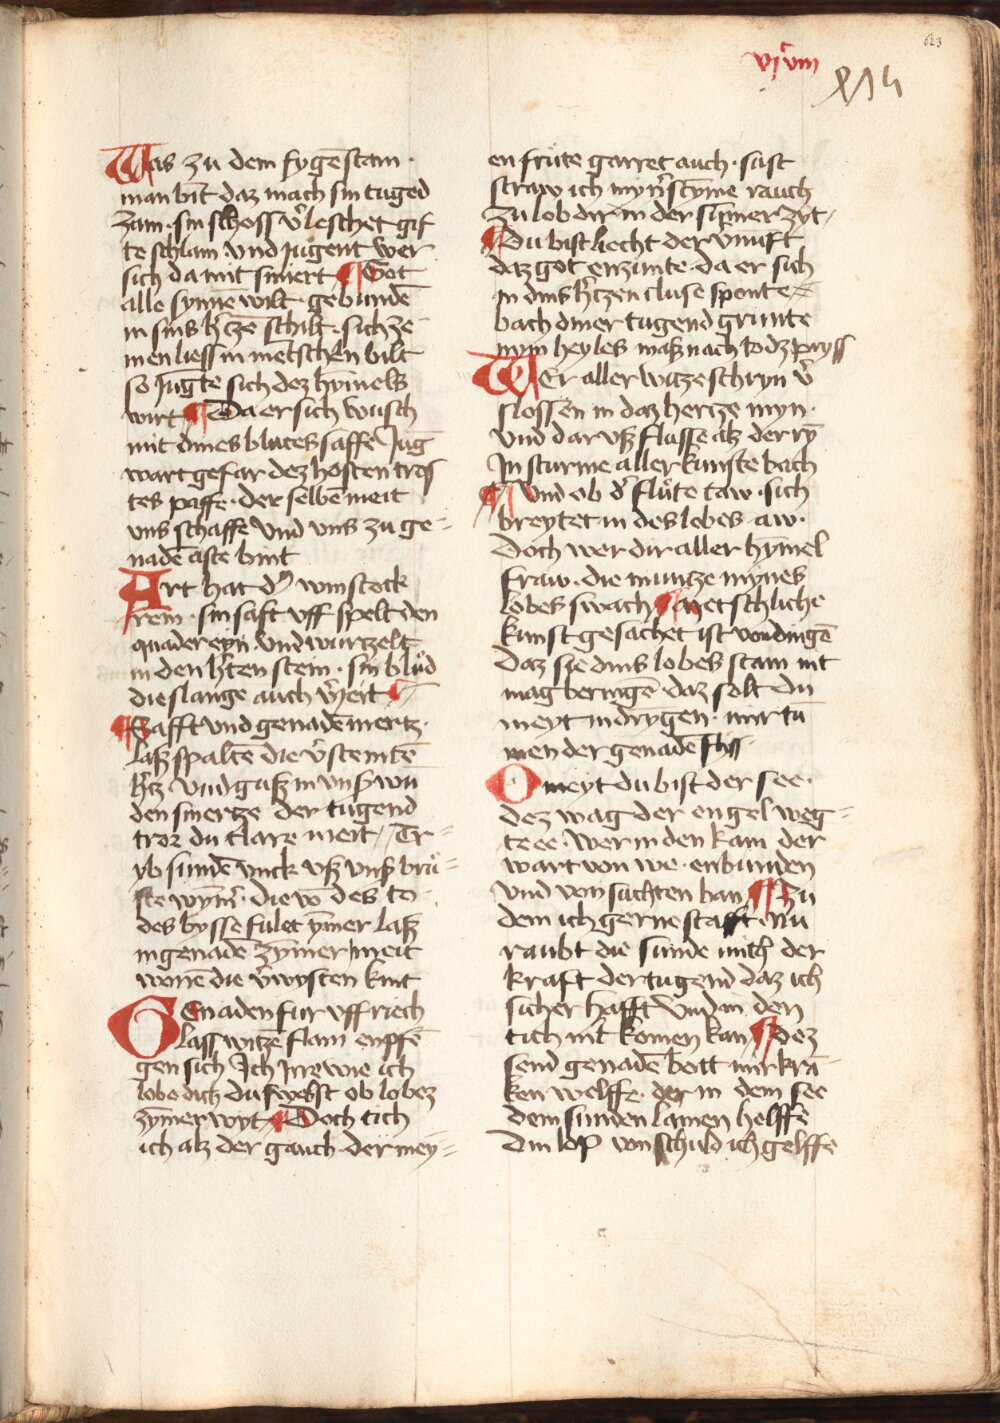 623
vjcviii
814
Was zu dem fygēstam ·
man bīt daz mach sin tuged
zam · sin schoss v̄leschet gif
te schlam vnd jugent wer
sich da mit smert ¶ Got
alle synne wilt · gebundē
in sins h̄tzē schilt · sich ze
men liess in mētschen bilt
so jugte sich dez hymels
wirt ¶ Da er sich wusch
mit dines blutes saffe Jug
wart gefar dez hosten tros
tes paffe · der selbe meit
vns schaffe vnd vns zu ge=
nadē aste bint
Art hat d̄ winstock
rein · sin saft vff spelt den
quadereyn vnd wurzelt
in den h̄ten stein · sin blud
die slange auch v̄seit ¶
¶ Safft vnd genadē mertz ·
laß spaltē die v̄steintē
h̄tz vnd guß in vnß wū
den smertze der tugend
tror du clare meit / Tr=
yb sundē vnck vß vnß bru=
ste wym̄ · die vō des to
des bysse fulet ym̄er laß
in genadē zym̄er meit
wonē die v̄wysten kint
Genaden fur vff riech
lass witze flam enpfē
gen sich Ich Inre wie ich
lobe dich du swebst ob lobez
zym̄er wyt ¶ Doch tich
ich alz der gauch der mey=
en frute garret auch · sust
straw ich myn̄ stym̄e rauch
zu lob dir in der sum̄er zyt /
¶ Du bist liecht der v̄nuft
daz got enzunte · da er sich
in dins h̄tzen cluse sponte
bach diner tugend grunte
nym heyles maß nach todz pryss
Wer aller witze schryn v̄
slossen in daz hertze myn ·
vnd dar vß flusse alz der ry̅
In sturme aller kunste bach
¶ vnd ob d̄ flute taw · sich
breytet in des lobes aw ·
doch wer dir aller hymel
fraw · die muntze mynes
lobes swach ¶ Metschliche
kunst gesachet ist von dingē
daz sie dins lobes stam nit
mag beringē · daz solt du
meyt indrygen · mir tū
men der genadē flyss ·
O meyt du bist der see ·
dez wag der engel weg=
te ee · wer in den kam der
wart von we · enbunden
vnd von suchten han ¶ Zu
dem ich gerne stafft · nu
raubt die sunde mich der
kraft der tugend daz ich
sicher hafft vnd an den
tich nit komen kan ¶ dez
send genadē bott mir krā
ken welffe · der in dem see
dem sunden lamen helffe
Din lop von schuld ich gelffe